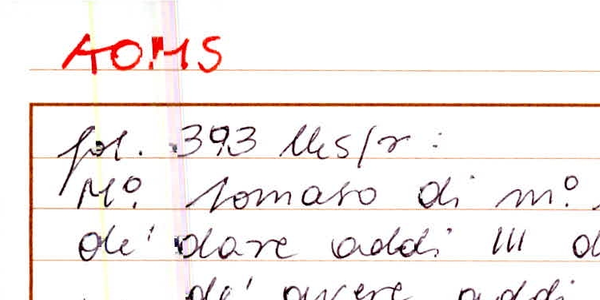 AOMS
fol. 393 s/r :
Mº. tomaso di mº.
de' dare addi III d
de' avere addi